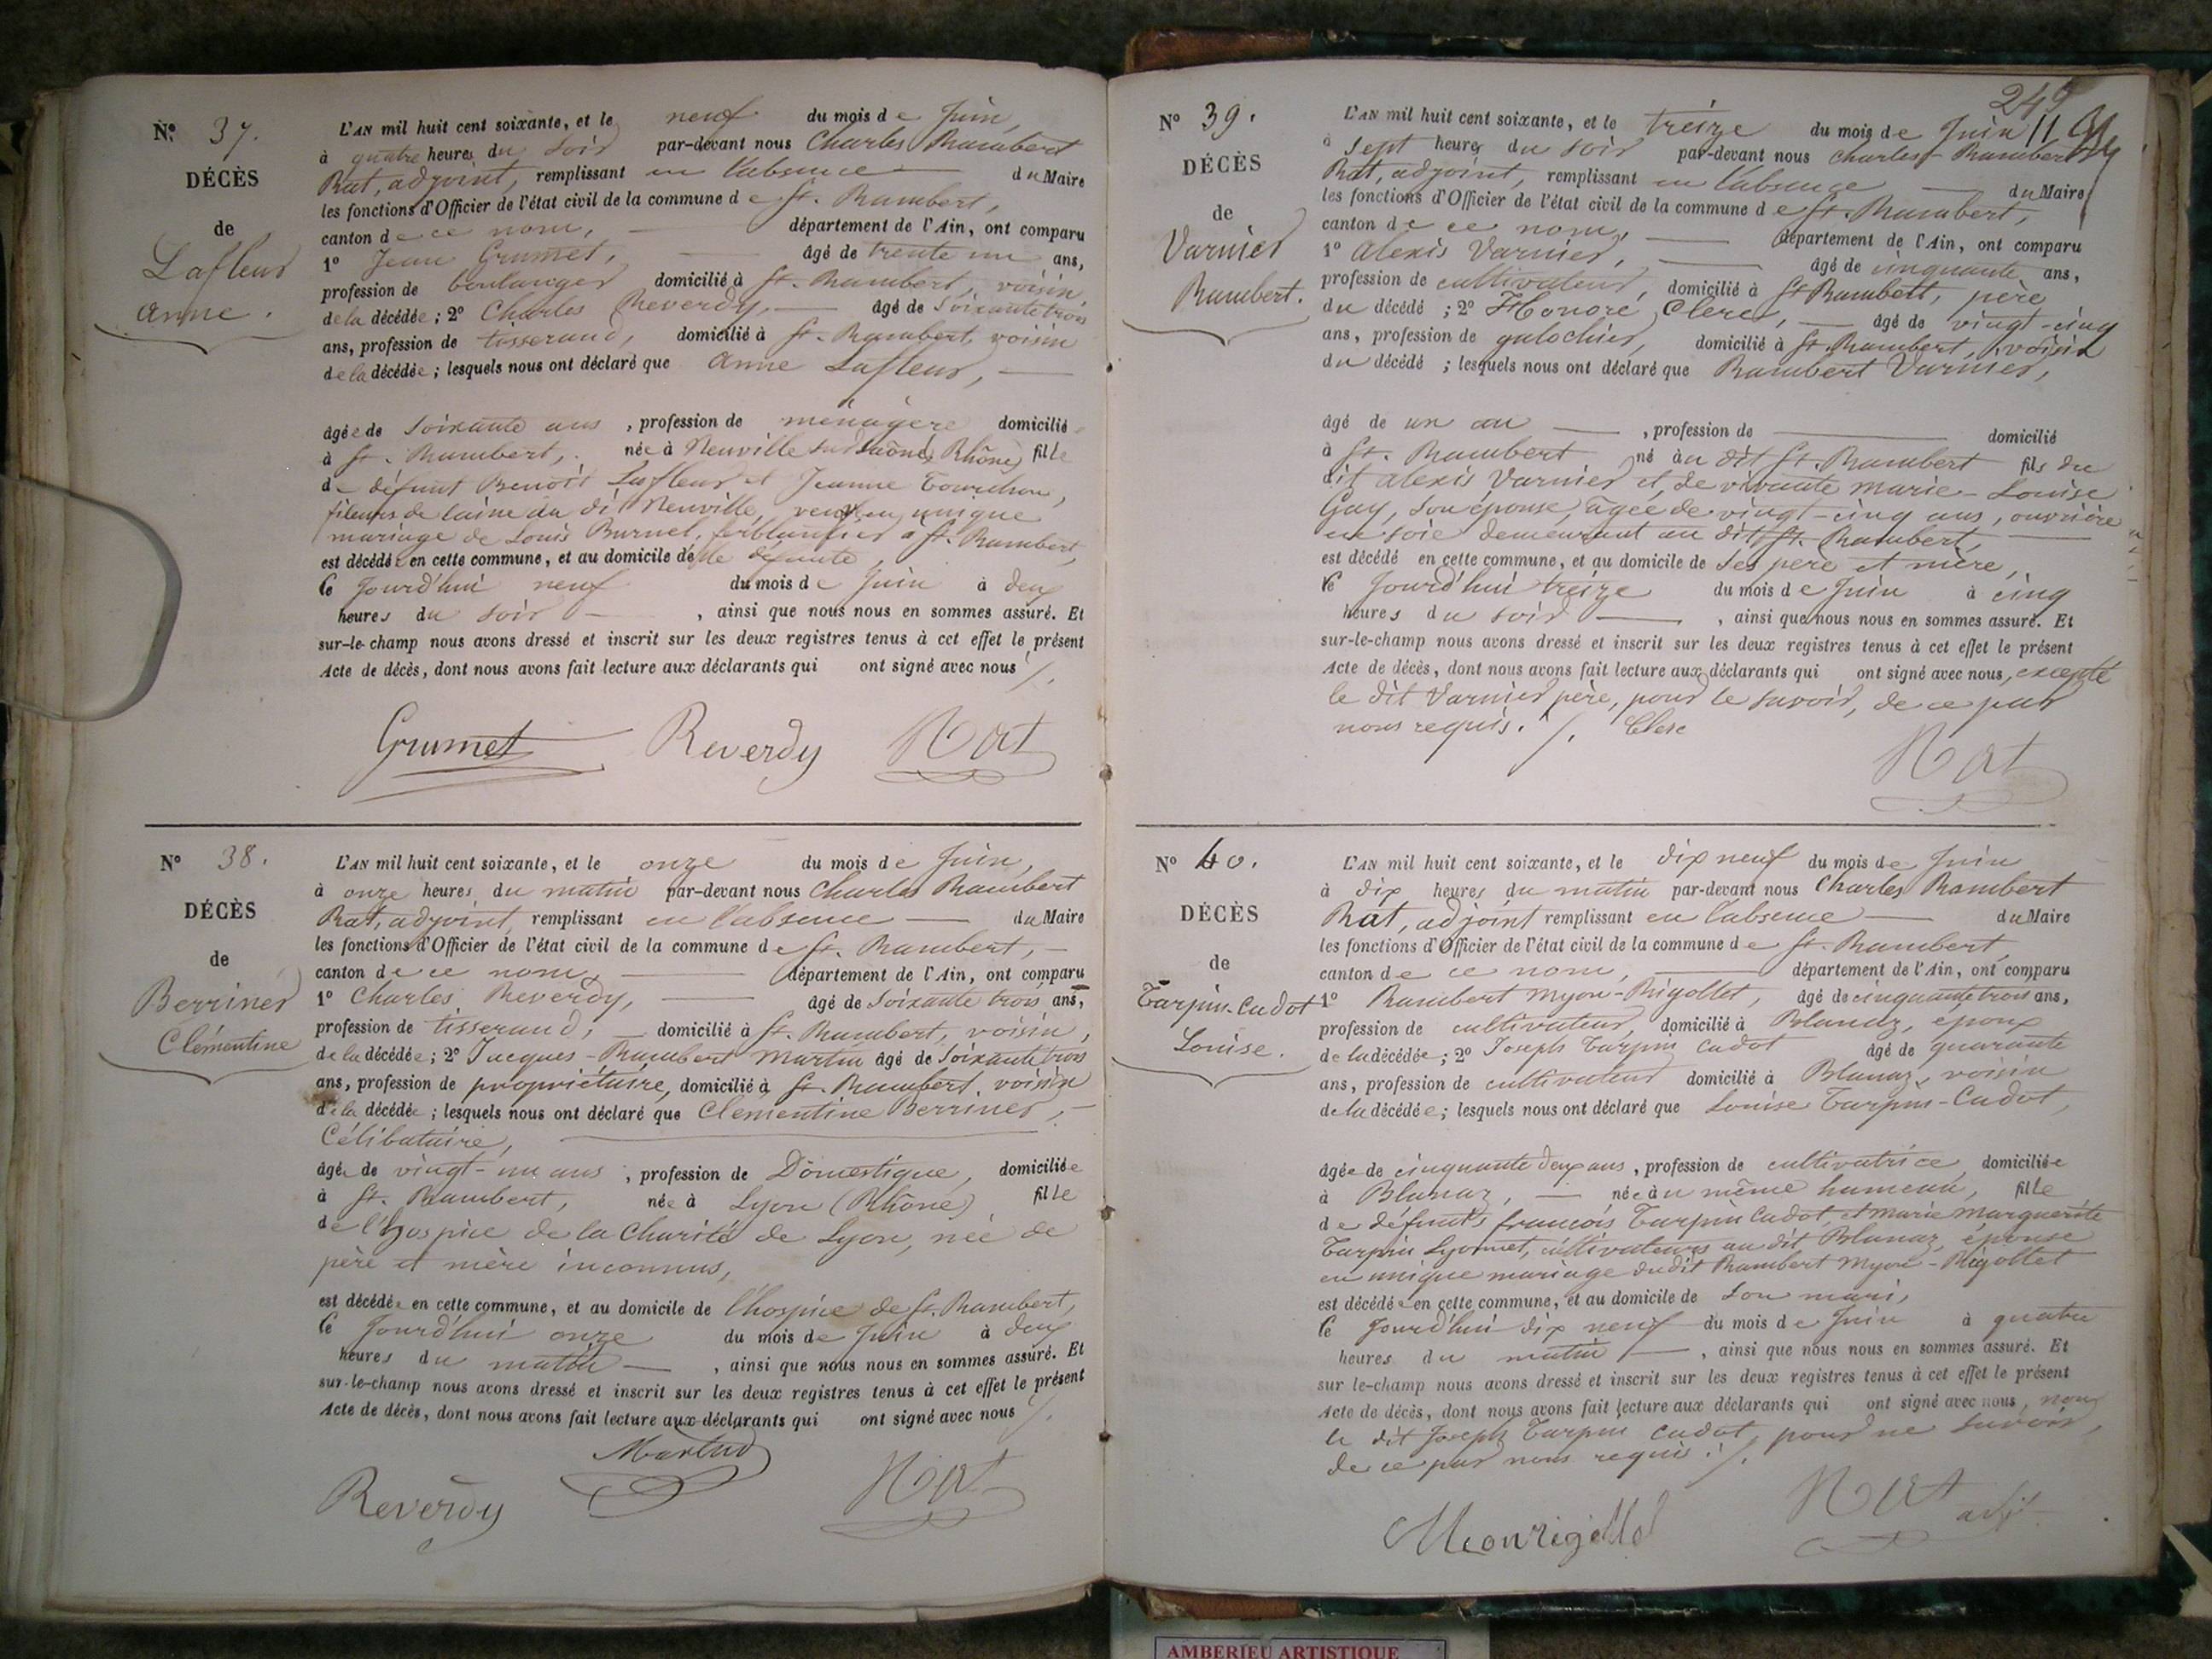 N.º 37.
DÉCÈS
de
Lafleur
Anne.
L'AN mil huit cent soixante, et le neuf du mois de Juin,
à quatre heures du soir par-devant nous Charles Rambert
Rat, adjoint, remplissant en l'absence du Maire
les fonctions d'Officier de l'état civil de la commune de St. Rambert,
canton de ce nom, département de l'Ain, ont comparu
1º Jean Grumet, âgé de trente un ans,
profession de boulanger domicilié à St. Rambert, voisin
de la décédée; 2º Charles Reverdy, âgé de soixante trois
ans, profession de tisserand, domicilié à St. Rambert, voisin
de la décédée; lesquels nous ont déclaré que Anne Lafleur,
âgée de soixante ans, profession de ménagère domicilié
à St. Rambert, née à Neuville sur Saône, Rhône) fille
de défunt Benoit Lafleur et Jeanne
fileurs de laine au dit Neuville, veuf en unique
mariage de Louis Burnel, ferblantier a St. Rambert,
est décédée en cette commune, et au domicile de le défunte
le Jourd'hui neuf du mois de Juin à deux
heures du soir, ainsi que nous nous en sommes assuré. Et
sur-le-champ nous avons dressé et inscrit sur les deux registres tenus à cet effet le présent
Acte de décès, dont nous avons fait lecture aux déclarants qui ont signé avec nous ./.
Grumet Reverdy Rat
Nº 38.
DÉCÈS
de
Berrinet
Clémentine
L'AN mil huit cent soixante, et le onze du mois de Juin,
à onze heures du matin par-devant nous Charles Rambert
Rat, adjoint, remplissant en l'absence du Maire
les fonctions d'Officier de l'état civil de la commune de St. Rambert,
canton de ce nom, département de l'Ain, ont comparu
1º Charles Reverdy, âgé de soixante trois ans,
profession de tisserand, domicilié à St. Rambert, voisin,
de la décédée; 2º Jacques-Rambert Martin âgé de soixante trois
ans, profession de propriétaire, domicilié à St. Rambert, voisin
de la décédée; lesquels nous ont déclaré que Clementine Berrinet,
Célibataire,
âgée de vingt-un ans, profession de Domestique, domiciliée
à St. Rambert, née à Lyon (Rhône) fille
de l'hospice de la Charité de Lyon, née de
père et mère inconnus,
est décédée en cette commune, et au domicile de l'hospice de St. Rambert,
le Jourd'hui onze du mois de Juin à deux
heures du matin, ainsi que nous nous en sommes assuré. Et
sur-le-champ nous avons dressé et inscrit sur les deux registres tenus à cet effet le présent
Acte de décès, dont nous avons fait lecture aux déclarants qui ont signé avec nous ./.
Martin
Reverdy Rat
249
Nº 39.
DÉCÈS
de
Varnier
Rambert.
L'AN mil huit cent soixante, et le treize du mois de Juin
à sept heures du soir par-devant nous Charles-Rambert
Rat, adjoint, remplissant en l'absence du Maire
les fonctions d'Officier de l'état civil de la commune de St. Rambert,
canton de ce nom, département de l'Ain, ont comparu
1º Alexis Varnier, âgé de cinquante ans,
profession de cultivateur, domicilié à St Rambert, père
du décédé; 2º Honoré Clerc, âgé de vingt-cinq
ans, profession de galochier, domicilié à St. Rambert, voisin
du décédé; lesquels nous ont déclaré que Rambert Varnier,
âgé de un an, profession de domicilié
à St. Rambert né au dit St. Rambert fils du
dit Alexis Varnier et de vivante Marie-Louise
Guy, son épouse, âgée de vingt-cinq ans, ouvrière
en soie demeurant au dit St. Rambert,
est décédé en cette commune, et au domicile de ses père et mère,
le Jourd'hui treize du mois de Juin à cinq
heures du soir, ainsi que nous nous en sommes assuré. Et
sur-le-champ nous avons dressé et inscrit sur les deux registres tenus à cet effet le présent
Acte de décès, dont nous avons fait lecture aux déclarants qui ont signé avec nous, excepté
le dit Varnier père, pour le savoir, de ce par
nous requis. ./. Clerc
Rat
Nº 40.
DÉCÈS
de
Tarpin-Cadot
Louise.
L'AN mil huit cent soixante, et le dix neuf du mois de Juin
à dix heures du matin par-devant nous Charles Rambert
Rat, adjoint remplissant en l'absence du Maire
les fonctions d'Officier de l'état civil de la commune de St. Rambert,
canton de ce nom, département de l'Ain, ont comparu
1º Rambert Myon-Rigollet, âgé de cinquante trois ans,
profession de cultivateur, domicilié à Blanaz, époux
de la décédée; 2º Joseph Tarpin Cadot âgé de quarante
ans, profession de cultivateur domicilié à Blanaz, voisin
de la décédée; lesquels nous ont déclaré que Louise Tarpin-Cadot,
âgée de cinquante deux ans, profession de cultivatrice domiciliée
à Blanaz, née au même hameau, fille
de défunts francois Tarpin Cadot, et Marie Marguerite
Tarpin Lyonnet, cultivateurs au dit Blanaz, épouse
en unique mariage dudit Rambert Myon-Rigollet
est décédée en cette commune, et au domicile de son mari,
le Jourd'hui dix neuf du mois de Juin à quatre
heures du matin, ainsi que nous nous en sommes assuré. Et
sur le-champ nous avons dressé et inscrit sur les deux registres tenus à cet effet le présent
Acte de décès, dont nous avons fait lecture aux déclarants qui ont signé avec nous, non
le dit Joseph Tarpin Cadot, pour ne savoir,
de ce par nous requis ./.
Rat
adjt
Mconrigollet
AMBERIEU ARTISTIQUE